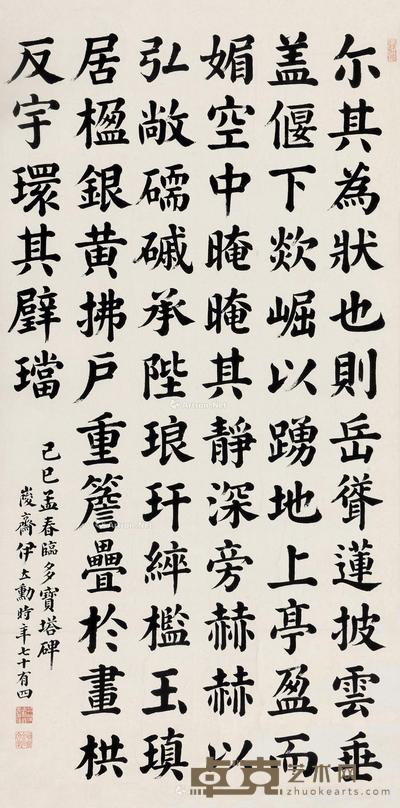 尓其為狀也則岳聳蓮披雲垂
盖偃下欻崛以踴地上亭盈而
媚空中晻晻其靜深旁赫赫以
弘敞礝磩承陛琅玕綷檻玉瑱
居楹銀黃拂戶重簷疊於畫栱
反宇環其璧璫
己巳孟春臨多寶塔碑
峻齋伊立勳時年七十有四
卓克艺术网
zhuokearts.com